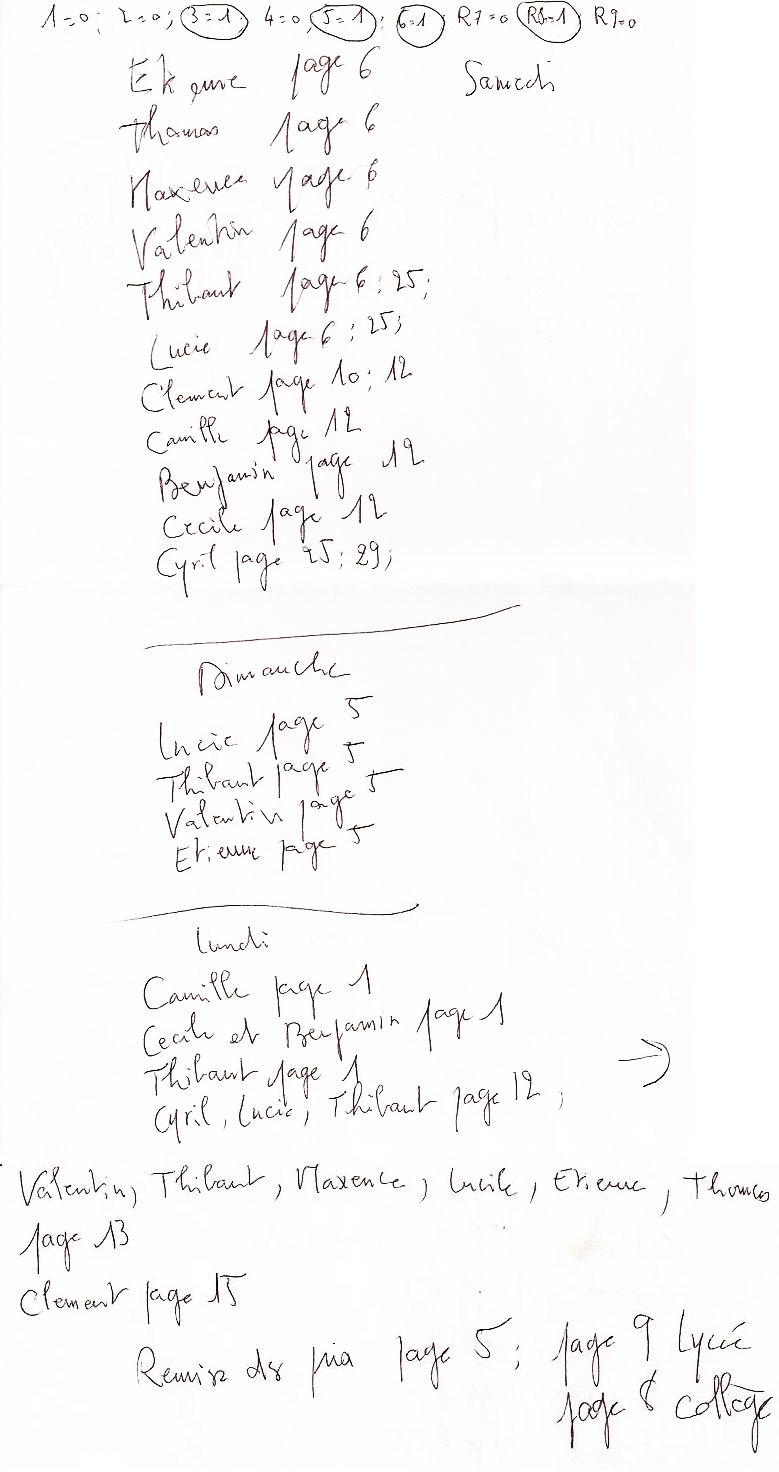 1=0; 2=0; 3=1; 4=0, 5=1; 6=1 R7=0 R8=1 R9=0
Etienne page 6 Samedi
Thomas page 6
Maxence page 6
Valentin page 6
Thibaut page 6; 25;
Lucie page 6; 25;
Clement page 10; 12
Camille page 12
Benjamin page 12
Cecile page 12
Cyril page 25; 29;
Dimanche
Lucie page 5
Thibaut page 5
Valentin page 5
Etienne page 5
Lundi
Camille page 1
Cecile et Benjamin page 1
Thibaut page 1
Cyril, Lucie, Thibaut page 12; →
Valentin, Thibaut, Maxence, Lucile, Etienne, Thomas
page 13
Clement page 15
Remise des prix page 5; page 9 Lycée
page 8 collège